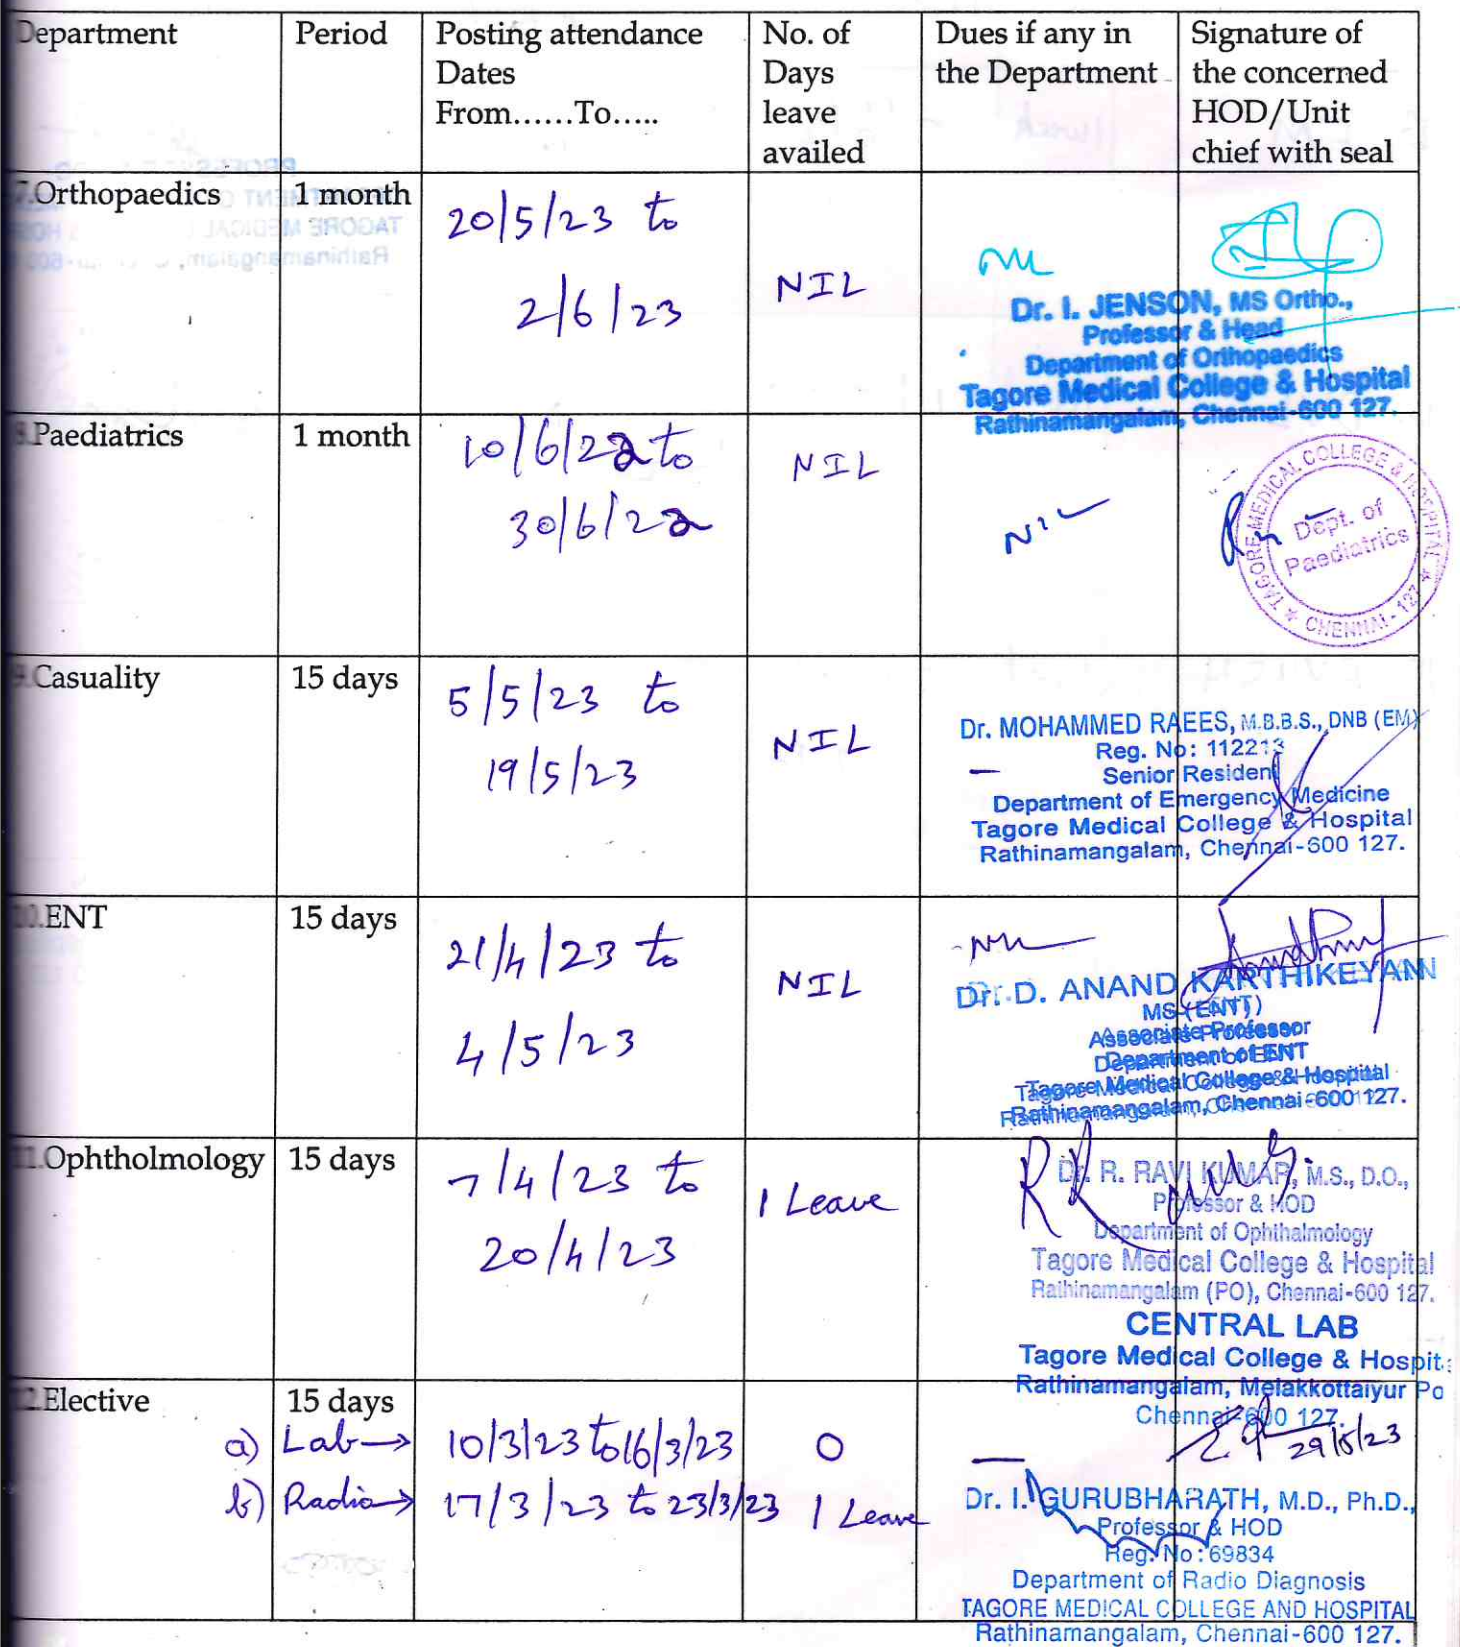 Department Period Posting attendance Dates From......To..... No. of Days leave availed Dues if any in the Department Signature of the concerned HOD/Unit chief with seal
7.Orthopaedics 1 month 20/5/23 to 2/6/23 NIL Nil
Dr. I. JENSON, MS Ortho.,
Professor & Head
Department of Orthopaedics
Tagore Medical College & Hospital
Rathinamangalam, Chennai-600 127.
8.Paediatrics 1 month 10/6/22 to 30/6/22 NIL NIL
TAGORE MEDICAL COLLEGE & HOSPITAL
Dept. of
Paediatrics
CHENNAI - 127
9.Casuality 15 days 5/5/23 to 19/5/23 NIL —
Dr. MOHAMMED RAEES, M.B.B.S., DNB (EM)
Reg. No: 112213
Senior Resident
Department of Emergency Medicine
Tagore Medical College & Hospital
Rathinamangalam, Chennai-600 127.
10.ENT 15 days 21/4/23 to 4/5/23 NIL Nil
Dr. D. ANAND KARTHIKEYAN
MS (ENT)
Associate Professor
Department of ENT
Tagore Medical College & Hospital
Rathinamangalam, Chennai-600 127.
11.Ophtholmology 15 days 7/4/23 to 20/4/23 1 Leave
Dr. R. RAVI KUMAR, M.S., D.O.,
Professor & HOD
Department of Ophthalmology
Tagore Medical College & Hospital
Rathinamangalam (PO), Chennai-600 127.
CENTRAL LAB
Tagore Medical College & Hospit
Rathinamangalam, Melakkottaiyur Po
Chennai-600 127.
12.Elective 15 days
a) Lab→ 10/3/23 to 16/3/23 0 — 29/5/23
b) Radio→ 17/3/23 to 23/3/23 1 Leave
Dr. I. GURUBHARATH, M.D., Ph.D.,
Professor & HOD
Reg. No : 69834
Department of Radio Diagnosis
TAGORE MEDICAL COLLEGE AND HOSPITAL
Rathinamangalam, Chennai-600 127.